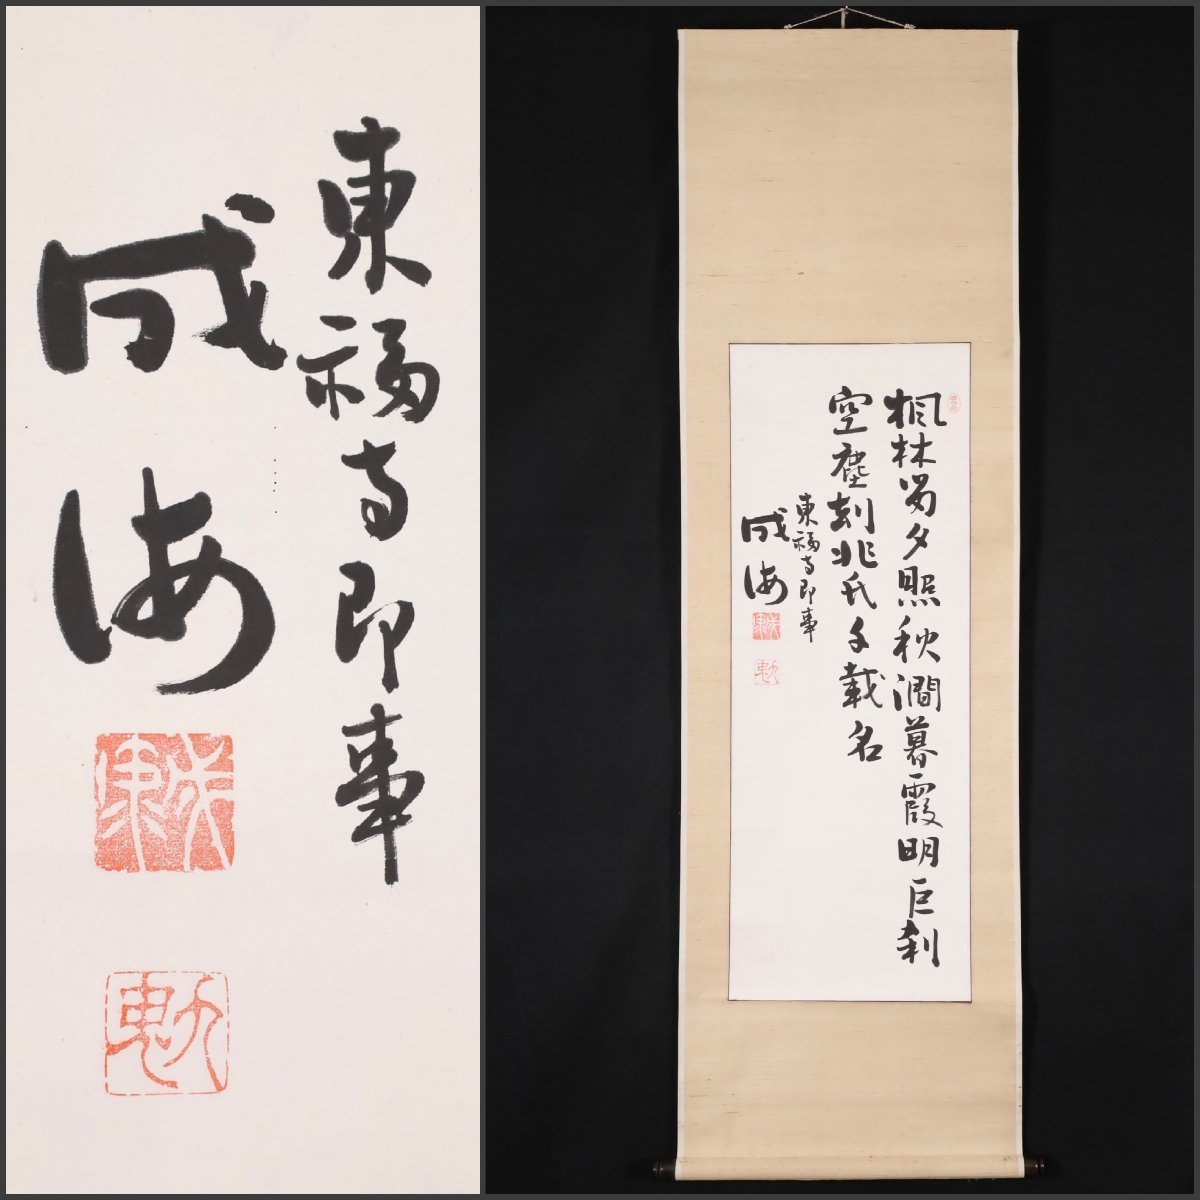 東福寺即事
成海
楓林留夕照秋澗暮霞明巨刹
空塵刧兆氏千載名
東福寺即事
成海